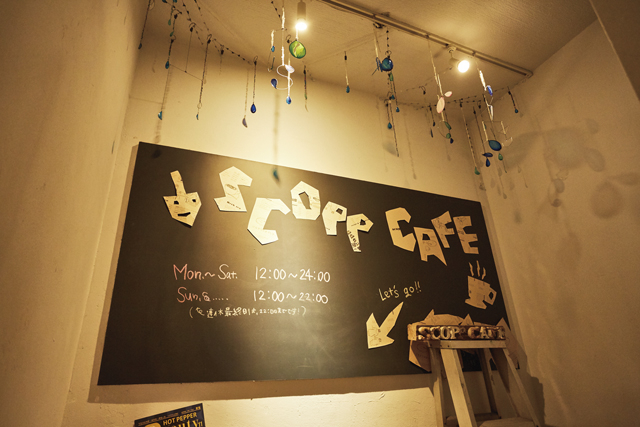 SCOPP CAFE
Mon.~Sat. 12:00~24:00
Sun.& ..... 12:00~22:00
Let's go!!
SCOPP CAFE
HOT PEPPER